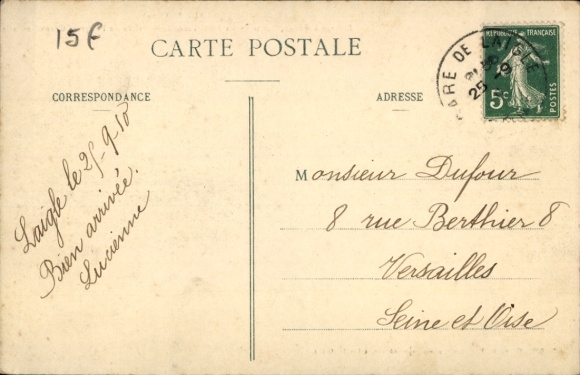 15f
CARTE POSTALE
CORRESPONDANCE
ADRESSE
GARE DE LAIGLE
25 -9
REPUBLIQUE FRANÇAISE
5c
POSTES
Laigle le 25-9-10
Bien arrivée.
Lucienne
Monsieur Dufour
8 rue Berthier 8
Versailles
Seine et Oise